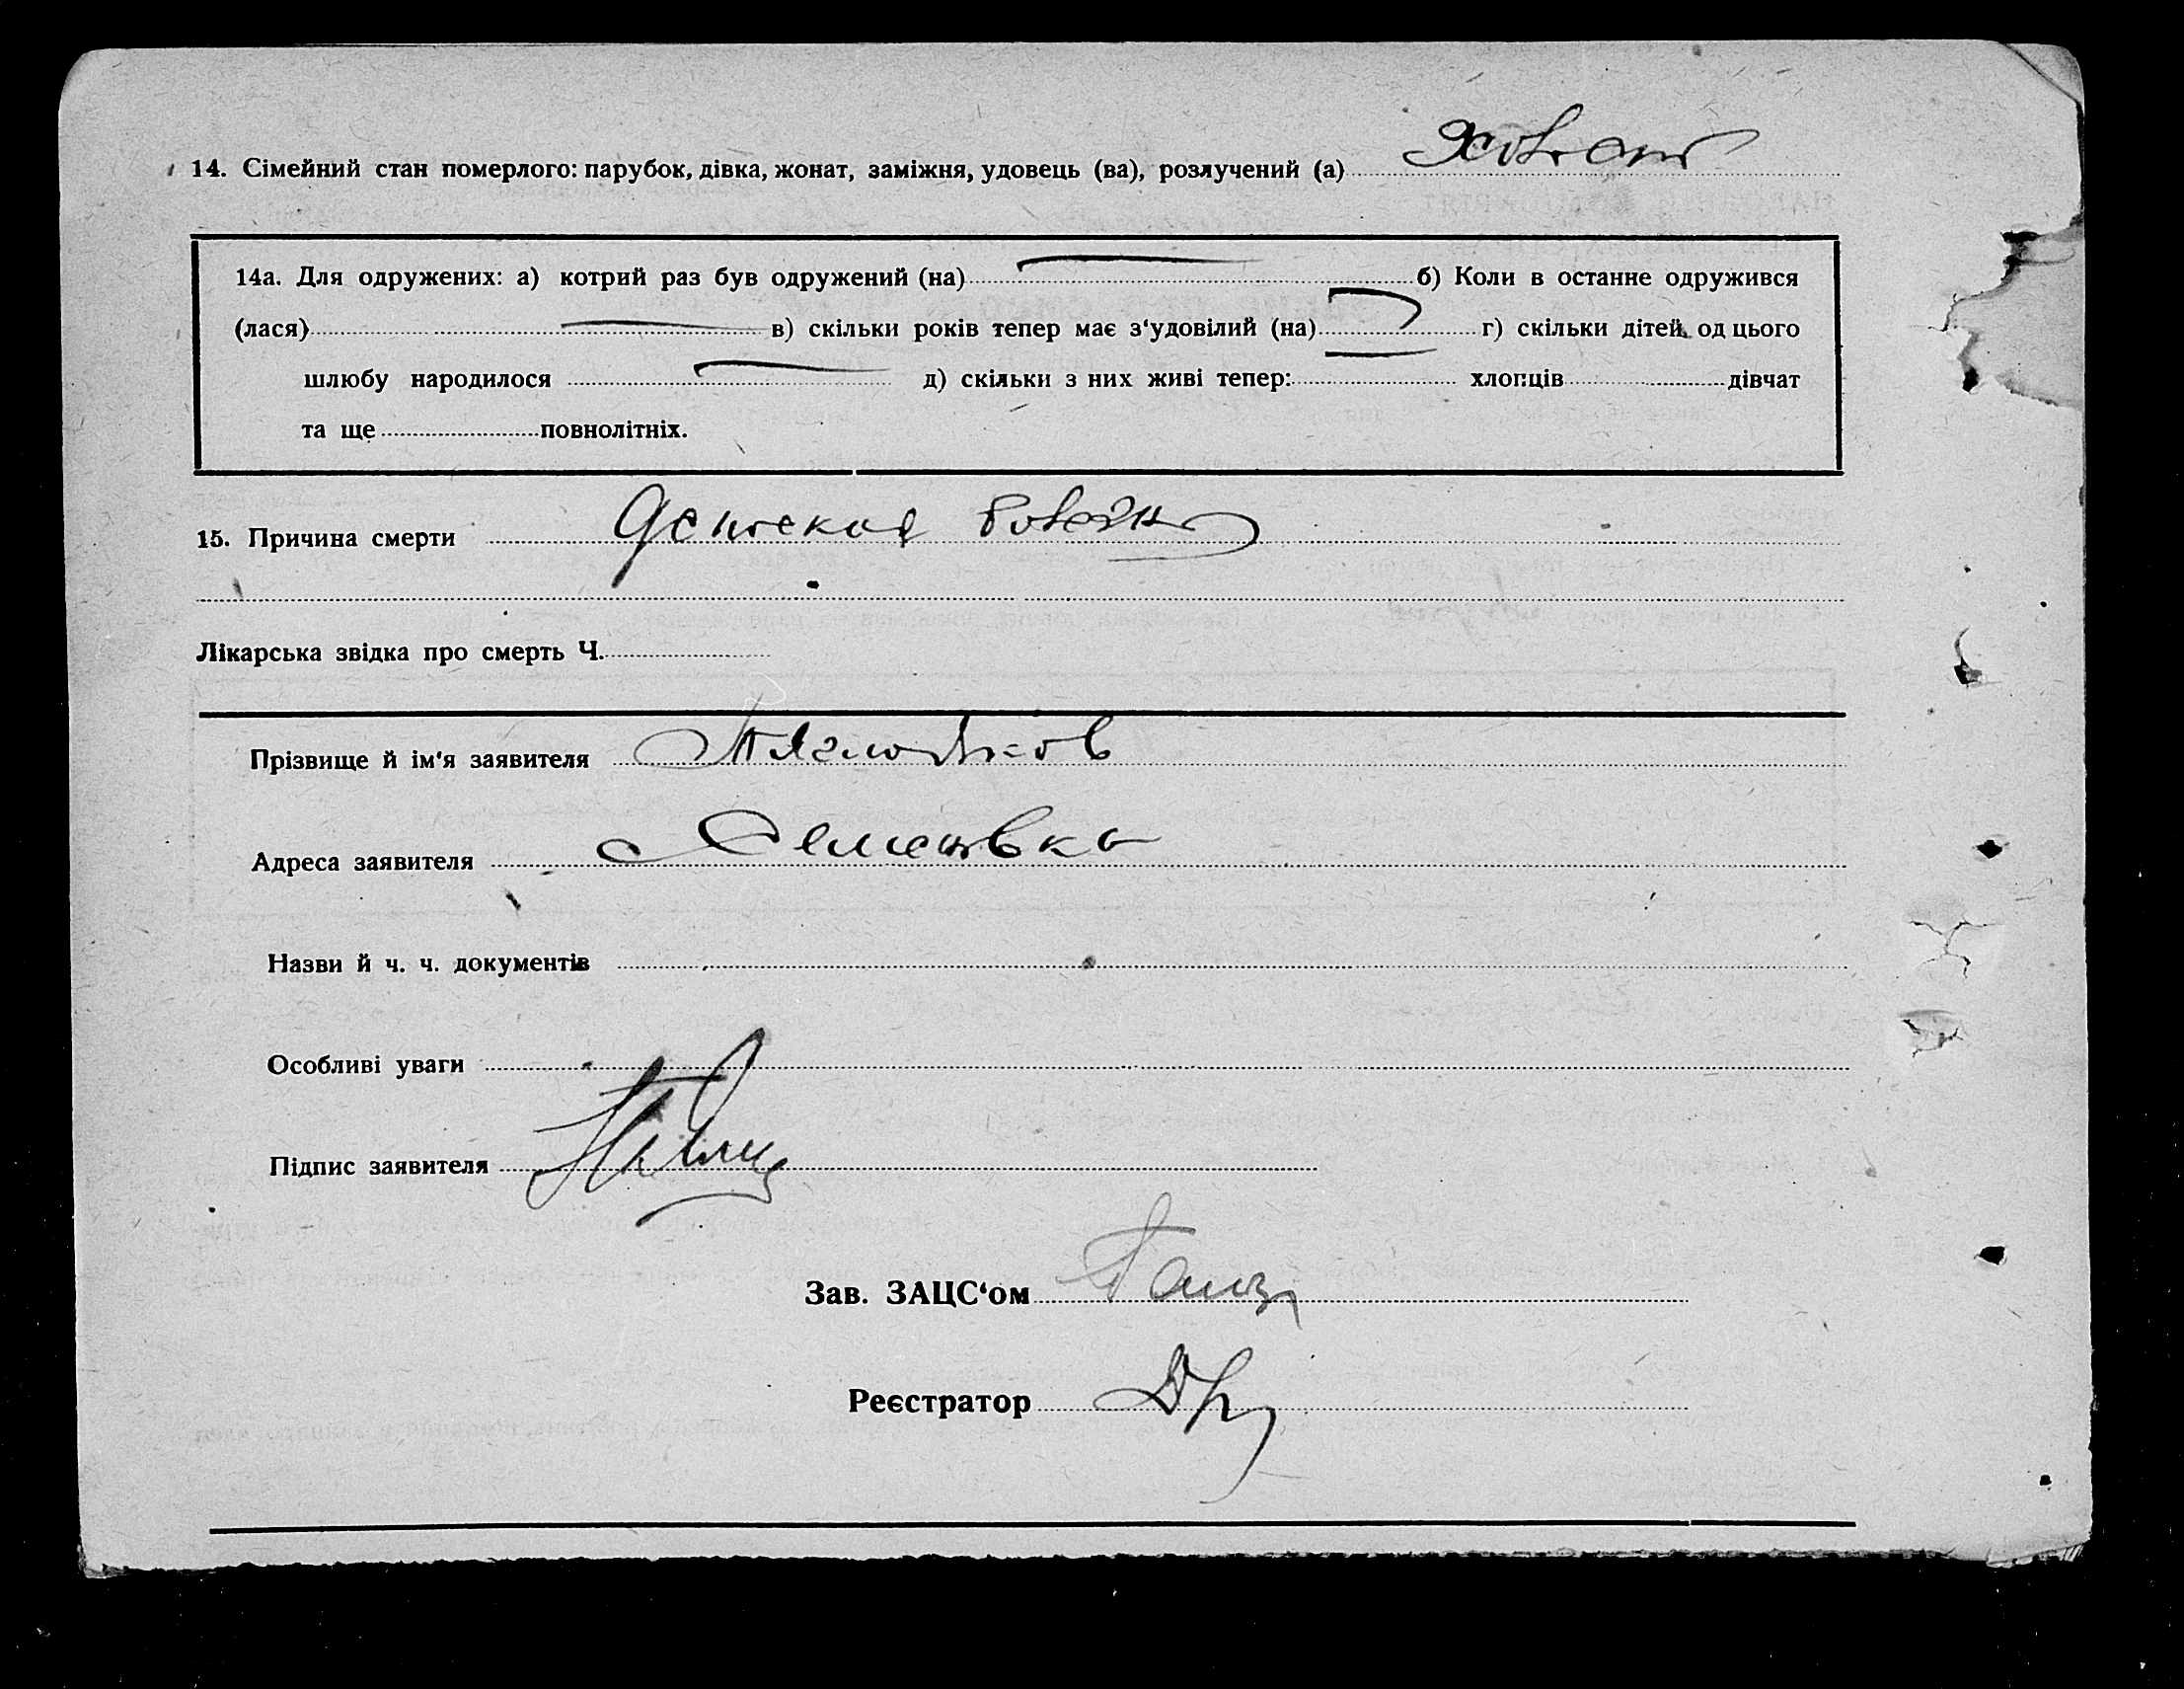 14. Сімейний стан померлого: парубок, дівка, жонат, заміжня, удовець (ва), розлучений (а) Холост
14а. Для одружених: а) котрий раз був одружений (на) б) Коли в останне одружився
(лася) в) скільки років тепер має з‘удовілий (на) г) скільки дітей од цього
шлюбу народилося д) скільки з них живі тепер: хлопців дівчат
та ще повнолітніх.
15. Причина смерти Детская болезнь
Лікарська звідка про смерть Ч.
Прізвище й ім‘я заявителя
Адреса заявителя
Назви й ч. ч. документів
Особливі уваги
Підпис заявителя
Зав. ЗАЦС‘ом
Реєстратор